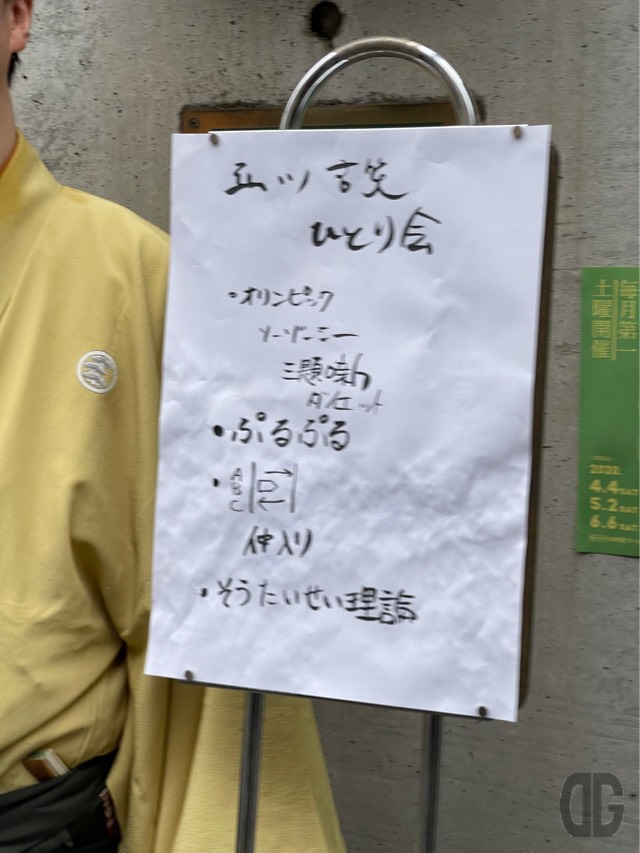 立川談笑
ひとり会
・オリンピック
ソーゾーシー
三題噺
ダンエット
・ぷるぷる
・ABC
仲入り
・そうたいせい理論
毎月第一
土曜開催
2020.
4.4 SAT
5.2 SAT
6.6 SAT
DG